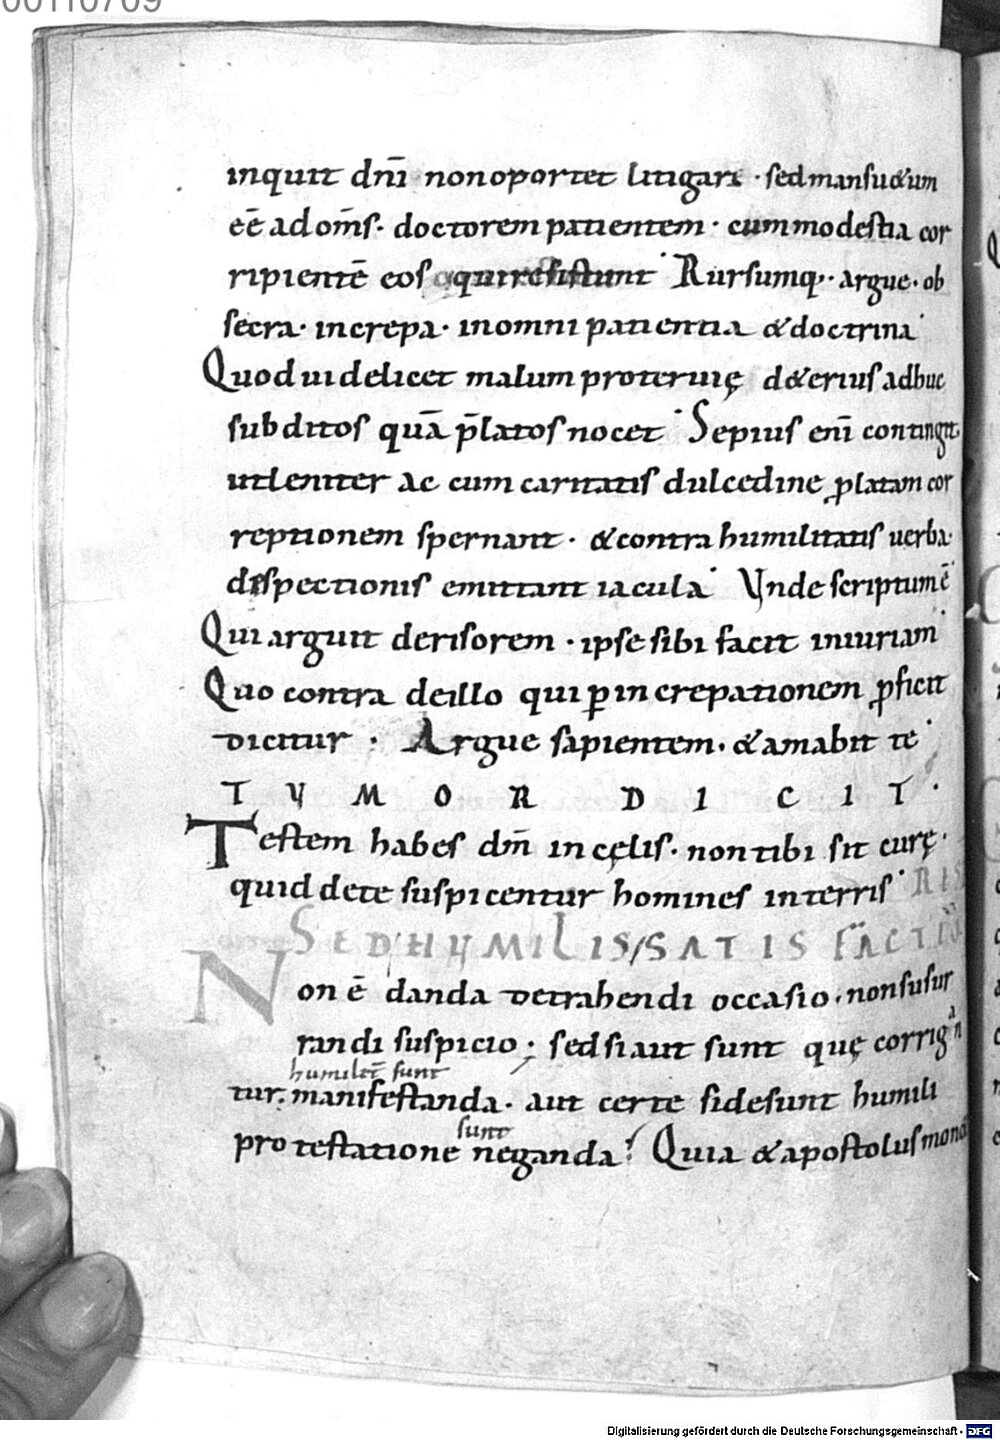 00110709
inquit dn̄i non oportet litigare · sed mansu&um
eē ad om̄s · doctorem patientem · cum modestia cor
ripientē eos qui resistunt · Rursumq · argue · ob
secra · increpa · in omni patientia & doctrina ·
Quod uidelicet malum proteruię d&erius adhuc
subditos quā p̄latos nocet · Sepius eni̅ contingit
ut leniter ac cum caritatis dulcedine ꝓlatam cor
reptionem spernant · & contra humilitatis uerba
dispectionis emittant iacula · Unde scriptum ē
Qui arguit derisorem · ipse sibi facit iniuriam ·
Quo contra de illo qui ꝑ increpationem ꝓficit
dicitur · Argue sapientem · & amabit te ·
T Y M O R D I C I T ·
Testem habes dm̄ in cęlis · non tibi sit curę ·
quid de te suspicentur homines in terris ·
SED HYMILIS SATIS
Non ē danda detrahendi occasio · non susur
randi suspicio ; sed si aut sunt quę corrig
humilit̄ sunt
tur · manifestanda · aut certe si desunt humili
sunt
protestatione neganda ; Quia & apostolus mon
Digitalisierung gefördert durch die Deutsche Forschungsgemeinschaft - DFG